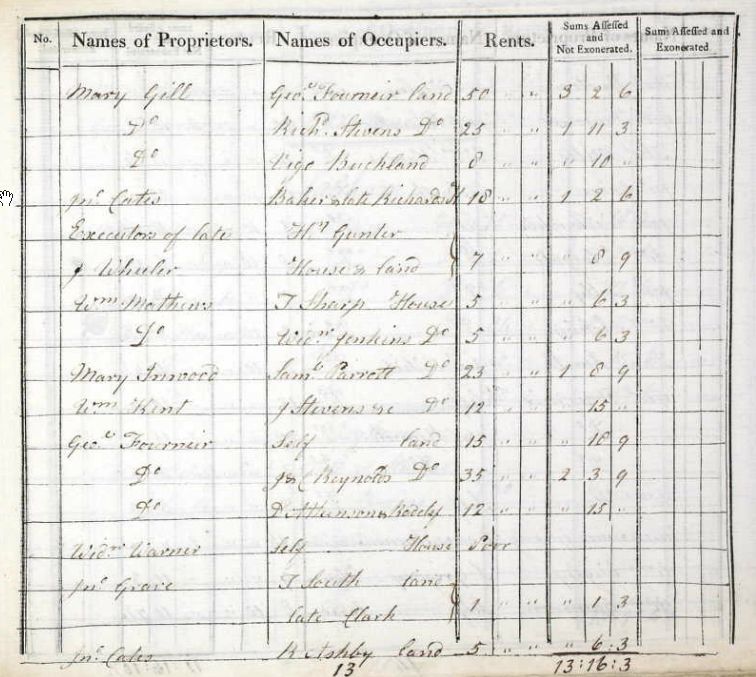 No. Names of Proprietors. Names of Occupiers. Rents. Sums Assessed and Not Exonerated. Sums Assessed and Exonerated
Mary Gill Geo.e Fourneir land 50 " " 3 2 6
Do Richd. Stevens Do 25 " " 1 11 3
Do Buckland 8 " " " 10 "
Jno Cates Baker & late Richards H 18 " " 1 2 6
Executors of late Hn Gunter
J Wheeler House & land 7 " " " 8 9
Wm Mathews T Sharp House 5 " " " 6 3
Do Widw Jenkins Do 5 " " " 6 3
Mary Inwood Saml Parrott Do 23 " " 1 8 9
Wm Kent J Stevens &c Do 12 " " " 15 "
Geo.e Fourneir Self land 15 " " " 18 9
Do J & C Reynolds Do 35 " " 2 3 9
Do D Atkinson & 12 " " " 15 "
Widw Warner Self House Poor
Jno Grave T South land
late Clark 1 " " " 1 3
Jno Cates R Ashby land 5 " " " 6 : 3
13 13 : 16 : 3